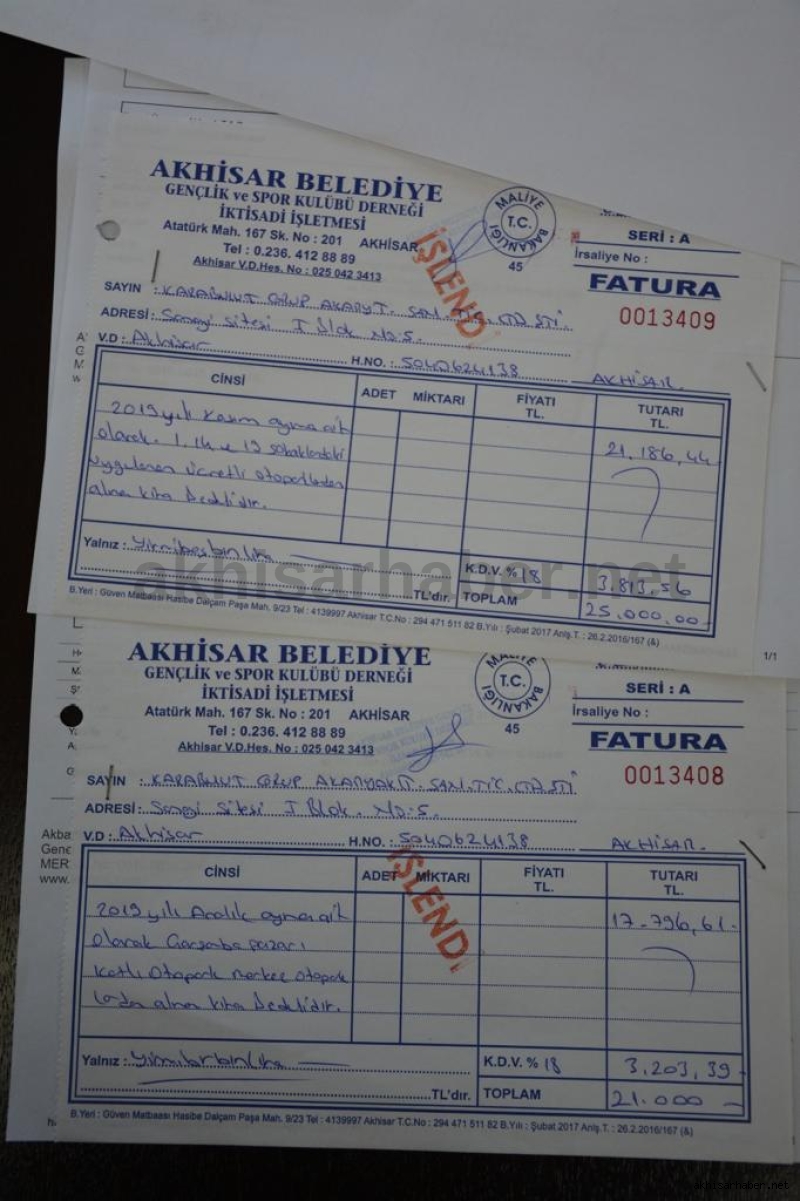 AKHİSAR BELEDİYE
GENÇLİK ve SPOR KULÜBÜ DERNEĞİ
İKTİSADİ İŞLETMESİ
Atatürk Mah. 167 Sk. No : 201 AKHİSAR
Tel : 0.236. 412 88 89
Akhisar V.D.Hes. No : 025 042 3413
MALİYE BAKANLIĞI
T.C.
45
İŞLENDİ
SERİ : A
İrsaliye No :
FATURA
0013409
SAYIN : KARABULUT GRUP AKARYT. SAN. TİC. LTD ŞTİ
ADRESİ: Sanayi Sitesi I Blok No:5.
V.D : Akhisar H.NO. : 5040624138 AKHİSAR.
CİNSİ ADET MİKTARI FİYATI TL. TUTARI TL.
2019 yılı Kasım ayına ait 21.186,44
olarak. 1, 14 ve 13 sokaklardaki
uygulanan ücretli otoparklardan
alınan kira bedelidir.
Yalnız : Yirmibeşbinlira K.D.V. % 18 3.813,56
TL'dır. TOPLAM 25.000,00
B.Yeri : Güven Matbaası Hasibe Dalçam Paşa Mah. 9/23 Tel : 4139997 Akhisar T.C.No : 294 471 511 82 B.Yılı : Şubat 2017 Anlş.T. : 26.2.2016/167 (&)
akhisarhaber.net
1/1
AKHİSAR BELEDİYE
GENÇLİK ve SPOR KULÜBÜ DERNEĞİ
İKTİSADİ İŞLETMESİ
Atatürk Mah. 167 Sk. No : 201 AKHİSAR
Tel : 0.236. 412 88 89
Akhisar V.D.Hes. No : 025 042 3413
MALİYE BAKANLIĞI
T.C.
45
SERİ : A
İrsaliye No :
FATURA
0013408
SAYIN : KARABULUT GRUP AKARYAKIT. SAN. TİC. LTD ŞTİ
ADRESİ: Sanayi Sitesi I Blok. No:5.
V.D : Akhisar H.NO. : 5040624138 AKHİSAR.
Akba
Genç
MER
www.
İŞLENDİ
CİNSİ ADET MİKTARI FİYATI TL. TUTARI TL.
2019 yılı Aralık ayına ait 17.796,61
olarak Çarşamba pazarı
Katlı Otopark merkez otopark
larda alınan kira bedelidir.
Yalnız : Yirmibirbinlira K.D.V. % 18 3.203,39
TL'dır. TOPLAM 21.000
B.Yeri : Güven Matbaası Hasibe Dalçam Paşa Mah. 9/23 Tel : 4139997 Akhisar T.C.No : 294 471 511 82 B.Yılı : Şubat 2017 Anlş.T. : 26.2.2016/167 (&)
akhisarhaber.net